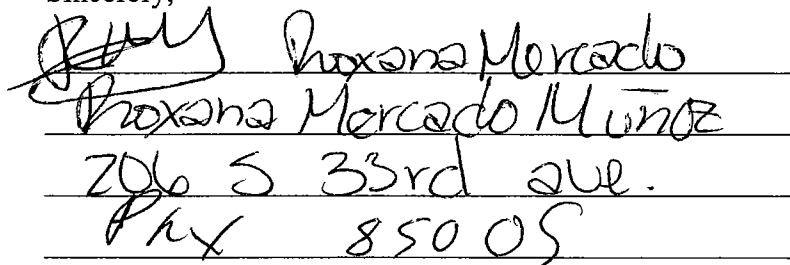 Sincerely,
Roxana Mercado
Roxana Mercado Muñoz
206 S 33rd ave.
Phx 85005